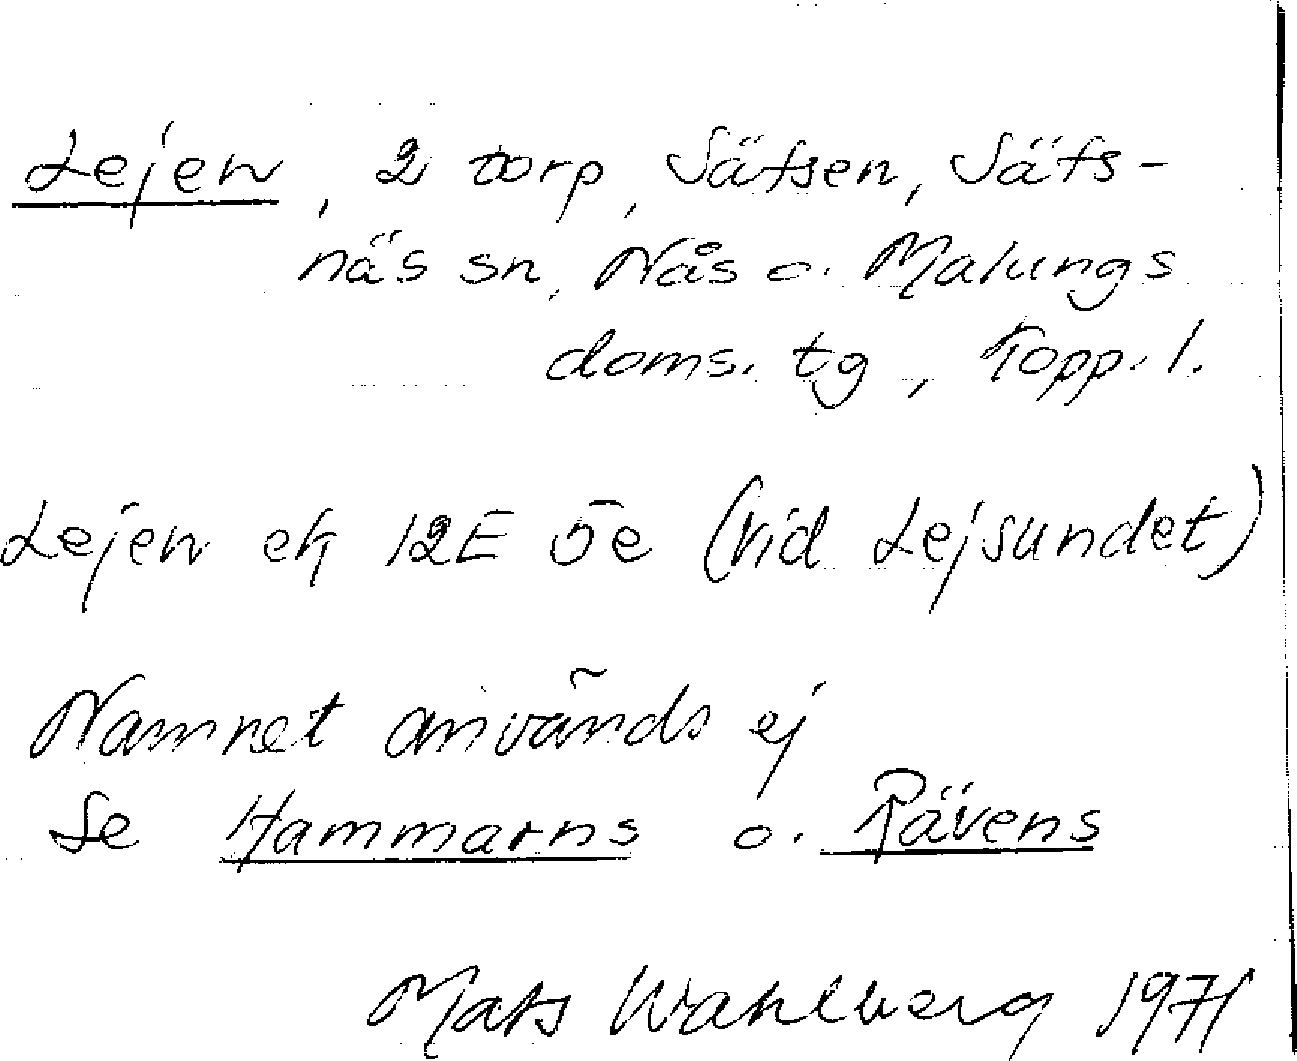 Lejen, 2 torp, Säfsen, Säfs-
näs sn, Nås o. Malungs
doms. tg, Kopp. l.
Lejen ek 12E 5e (vid Lejsundet)
Namnet används ej
Se Hammarns o. Rävens
Mats Wahlberg 1971